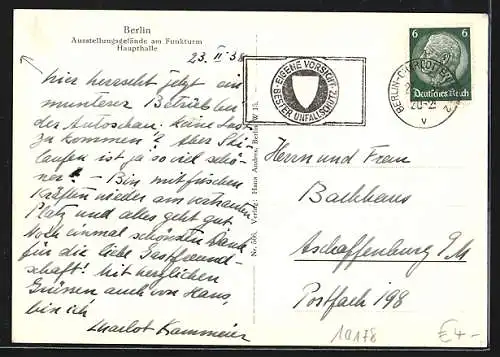 Berlin
Ausstellungsgelände am Funkturm
Haupthalle
23. II. 38
hier herrscht jetzt ein
munterer Betrieb in
der Autoschau. Keine Lust
zu kommen? Aber Ski-
laufen ist ja so viel schö-
ner! – Bin mit frischen
Kräften wieder am vertrauten
Platz und alles geht gut
Noch einmal schönsten Dank
für die liebe Gastfreund-
schaft! Mit herzlichen
Grüssen auch von Haus,
bin ich
Kammeier
No. 560. Verlag: Hans Andres, Berlin W 35.
EIGENE VORSICHT
BESTER UNFALLSCHUTZ
6 6
Deutsches Reich
BERLIN-CHARLOTTENBURG 2
V
Herrn und Frau
Bachhaus
Aschaffenburg a/M
Postfach 198
10178
€4-